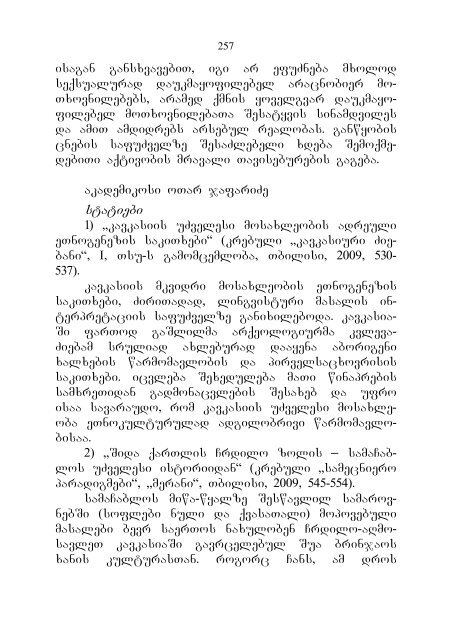 257
ისაგან განსხვავებით, იგი არ ეფუძნება მხოლოდ
სექსუალურად დაუკმაყოფილებელ არაცნობიერ მო-
თხოვნილებებს, არამედ ქმნის ყოველგვარ დაუკმაყო-
ფილებელ მოთხოვნილებათა შესატყვის სინამდვილეს
და ამით ამდიდრებს არსებულ რეალობას. განწყობის
ცნების საფუძველზე შესაძლებელი ხდება შემოქმე-
დებითი აქტივობის მრავალი თავისებურების გაგება.
აკადემიკოსი ოთარ ჯაფარიძე
სტატიები
1) „კავკასიის უძველესი მოსახლეობის ადრეული
ეთნოგენეზის საკითხები“ (კრებული „კავკასიური ძიე-
ბანი“, I, თსუ-ს გამომცემლობა, თბილისი, 2009, 530-
537).
კავკასიის მკვიდრი მოსახლეობის ეთნოგენეზის
საკითხები, ძირითადად, ლინგვისტური მასალის ინ-
ტერპრეტაციის საფუძველზე განიხილებოდა. კავკასია-
ში ფართოდ გაშლილმა არქეოლოგიურმა კვლევა-
ძიებამ სრულიად ახლებურად დააყენა აბორიგენი
ხალხების წარმომავლობის და პირველსაცხოვრისის
საკითხები. იცვლება შეხედულება მათი წინაპრების
სამხრეთიდან გადმონაცვლების შესახებ და უფრო
ისაა სავარაუდო, რომ კავკასიის უძველესი მოსახლე-
ობა ეთნოკულტურულად ადგილობრივი წარმომავლო-
ბისაა.
2) „შიდა ქართლის ჩრდილო ზოლის – სამაჩაბ-
ლოს უძველესი ისტორიიდან“ (კრებული „სამეცნიერო
პარადიგმები“, „მერანი“, თბილისი, 2009, 545-554).
სამაჩაბლოს მიწა-წყალზე შესწავლილ სამაროვ-
ნებში (სოფლები ნული და ქვასათალი) მოპოვებული
მასალები ბევრ საერთოს ნახულობენ ჩრდილო-აღმო-
სავლეთ კავკასიაში გავრცელებულ შუა ბრინჯაოს
ხანის კულტურასთან. როგორც ჩანს, ამ დროს